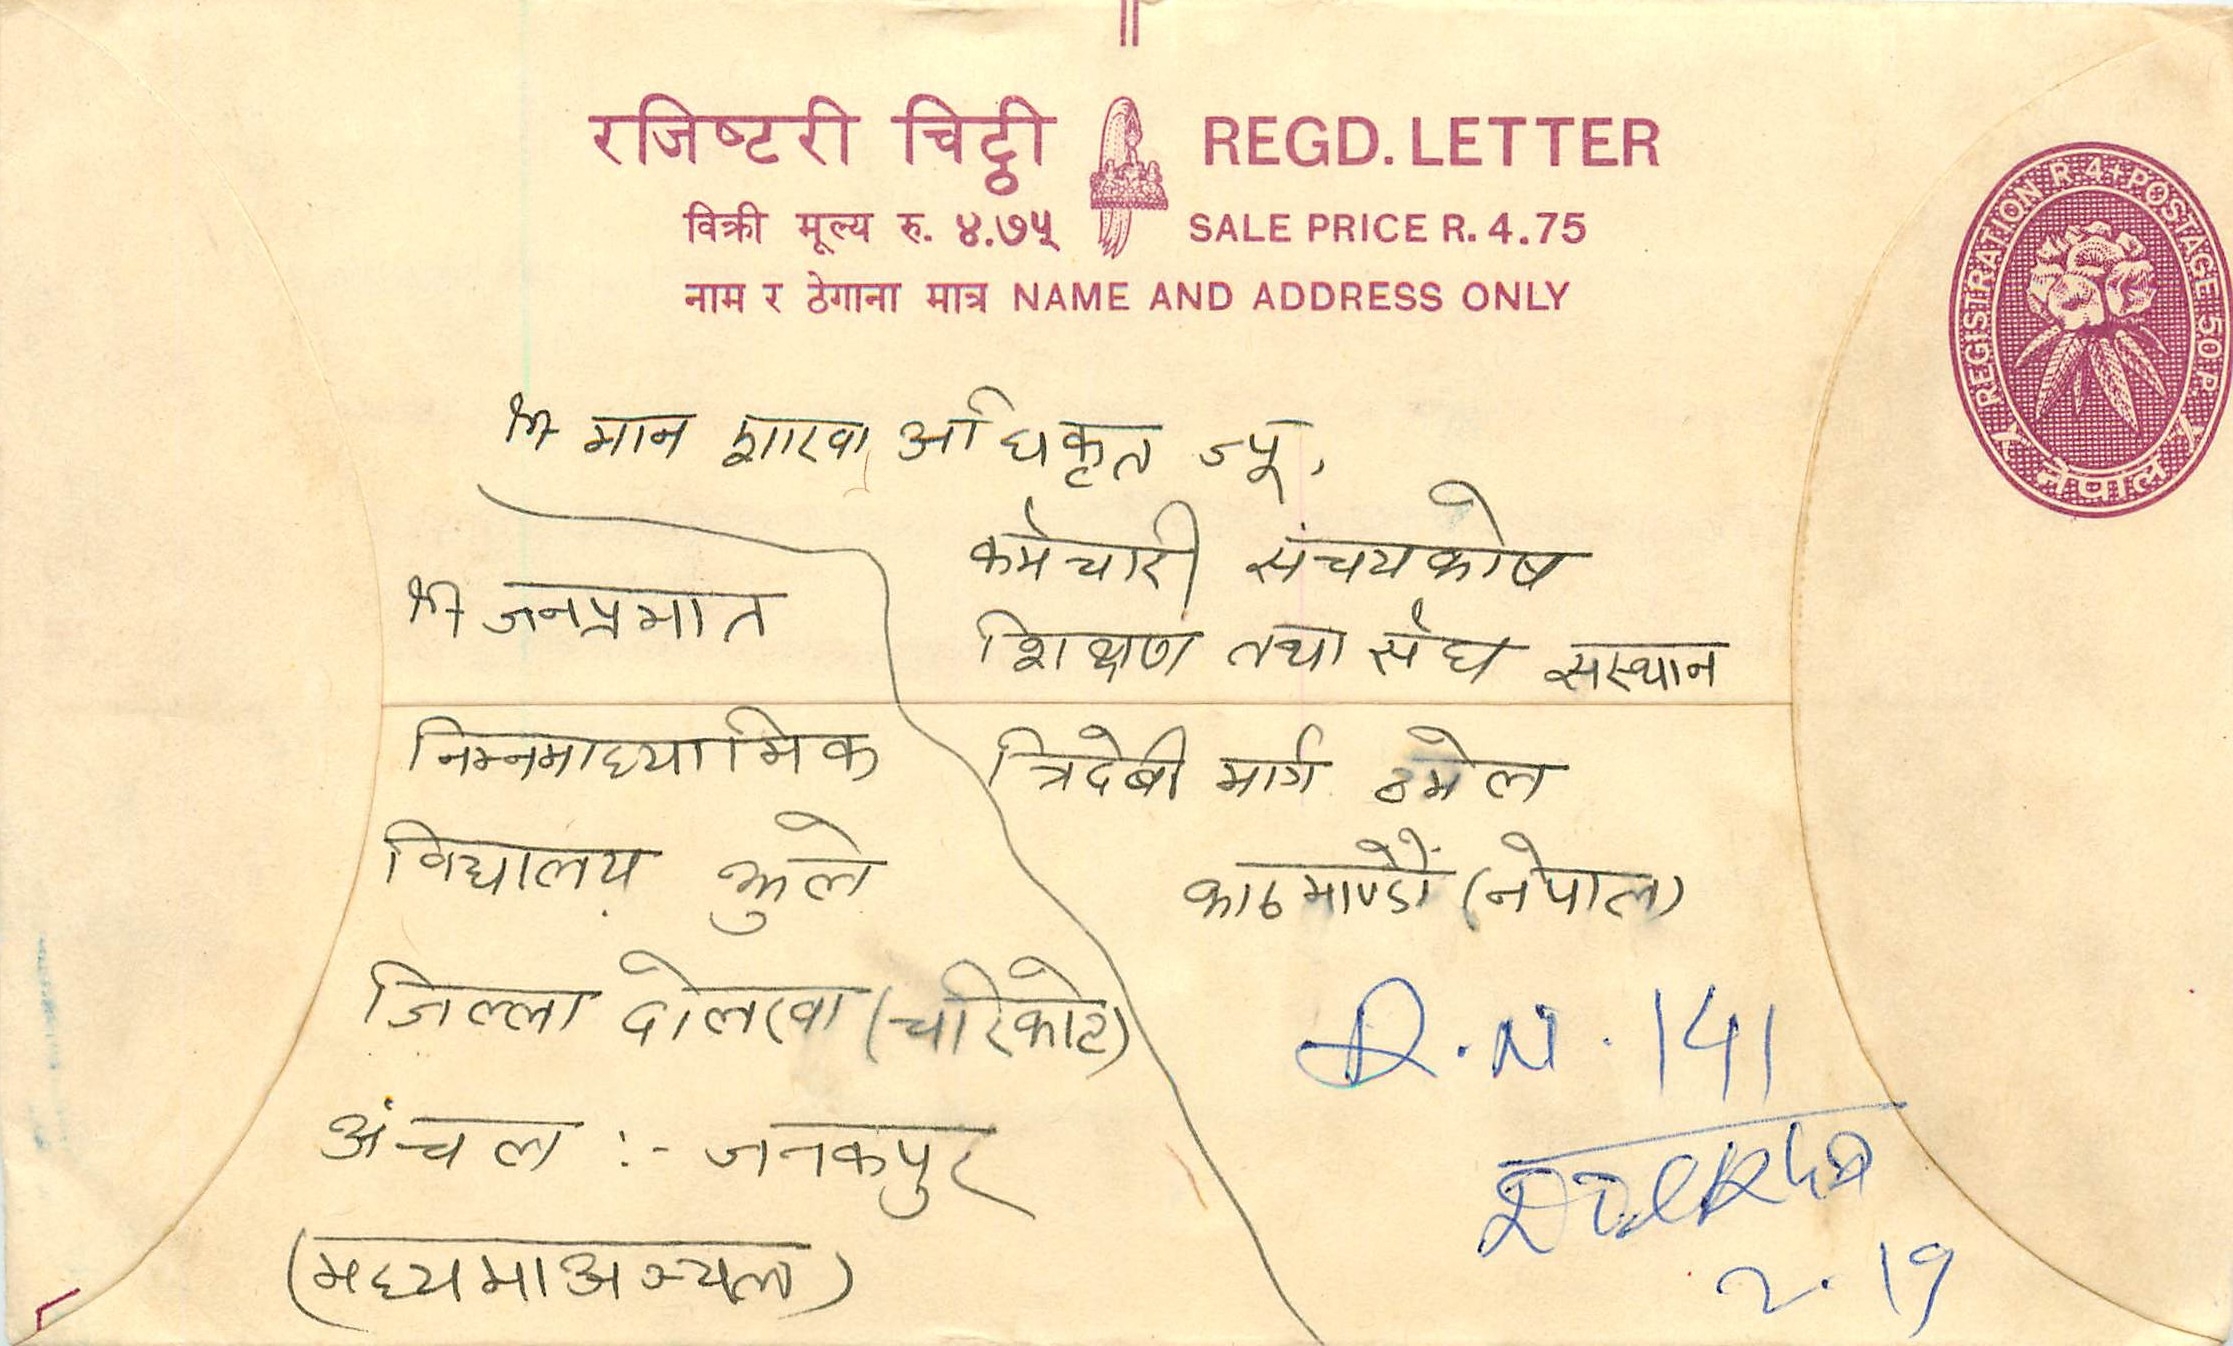 रजिष्टरी चिट्ठी REGD. LETTER
विक्री मूल्य रु. ४.७५ SALE PRICE R. 4.75
नाम र ठेगाना मात्र NAME AND ADDRESS ONLY
REGISTRATION R. 4 + POSTAGE 50 P.
नेपाल
श्री मान शाखा अधिकृत ज्यू,
कर्मचारी संचयकोष
शिक्षण तथा संघ सस्थान
त्रिदेबी मार्ग ठमेल
काठमाण्डौं (नेपाल)
श्री जनप्रभात
निम्नमाध्यामिक
विद्यालय झुले
जिल्ला दोलखा (चरिकोट)
अंचल :- जनकपुर
(मध्यमाञ्चल)
R. N. 141
Dolkha
2. 19